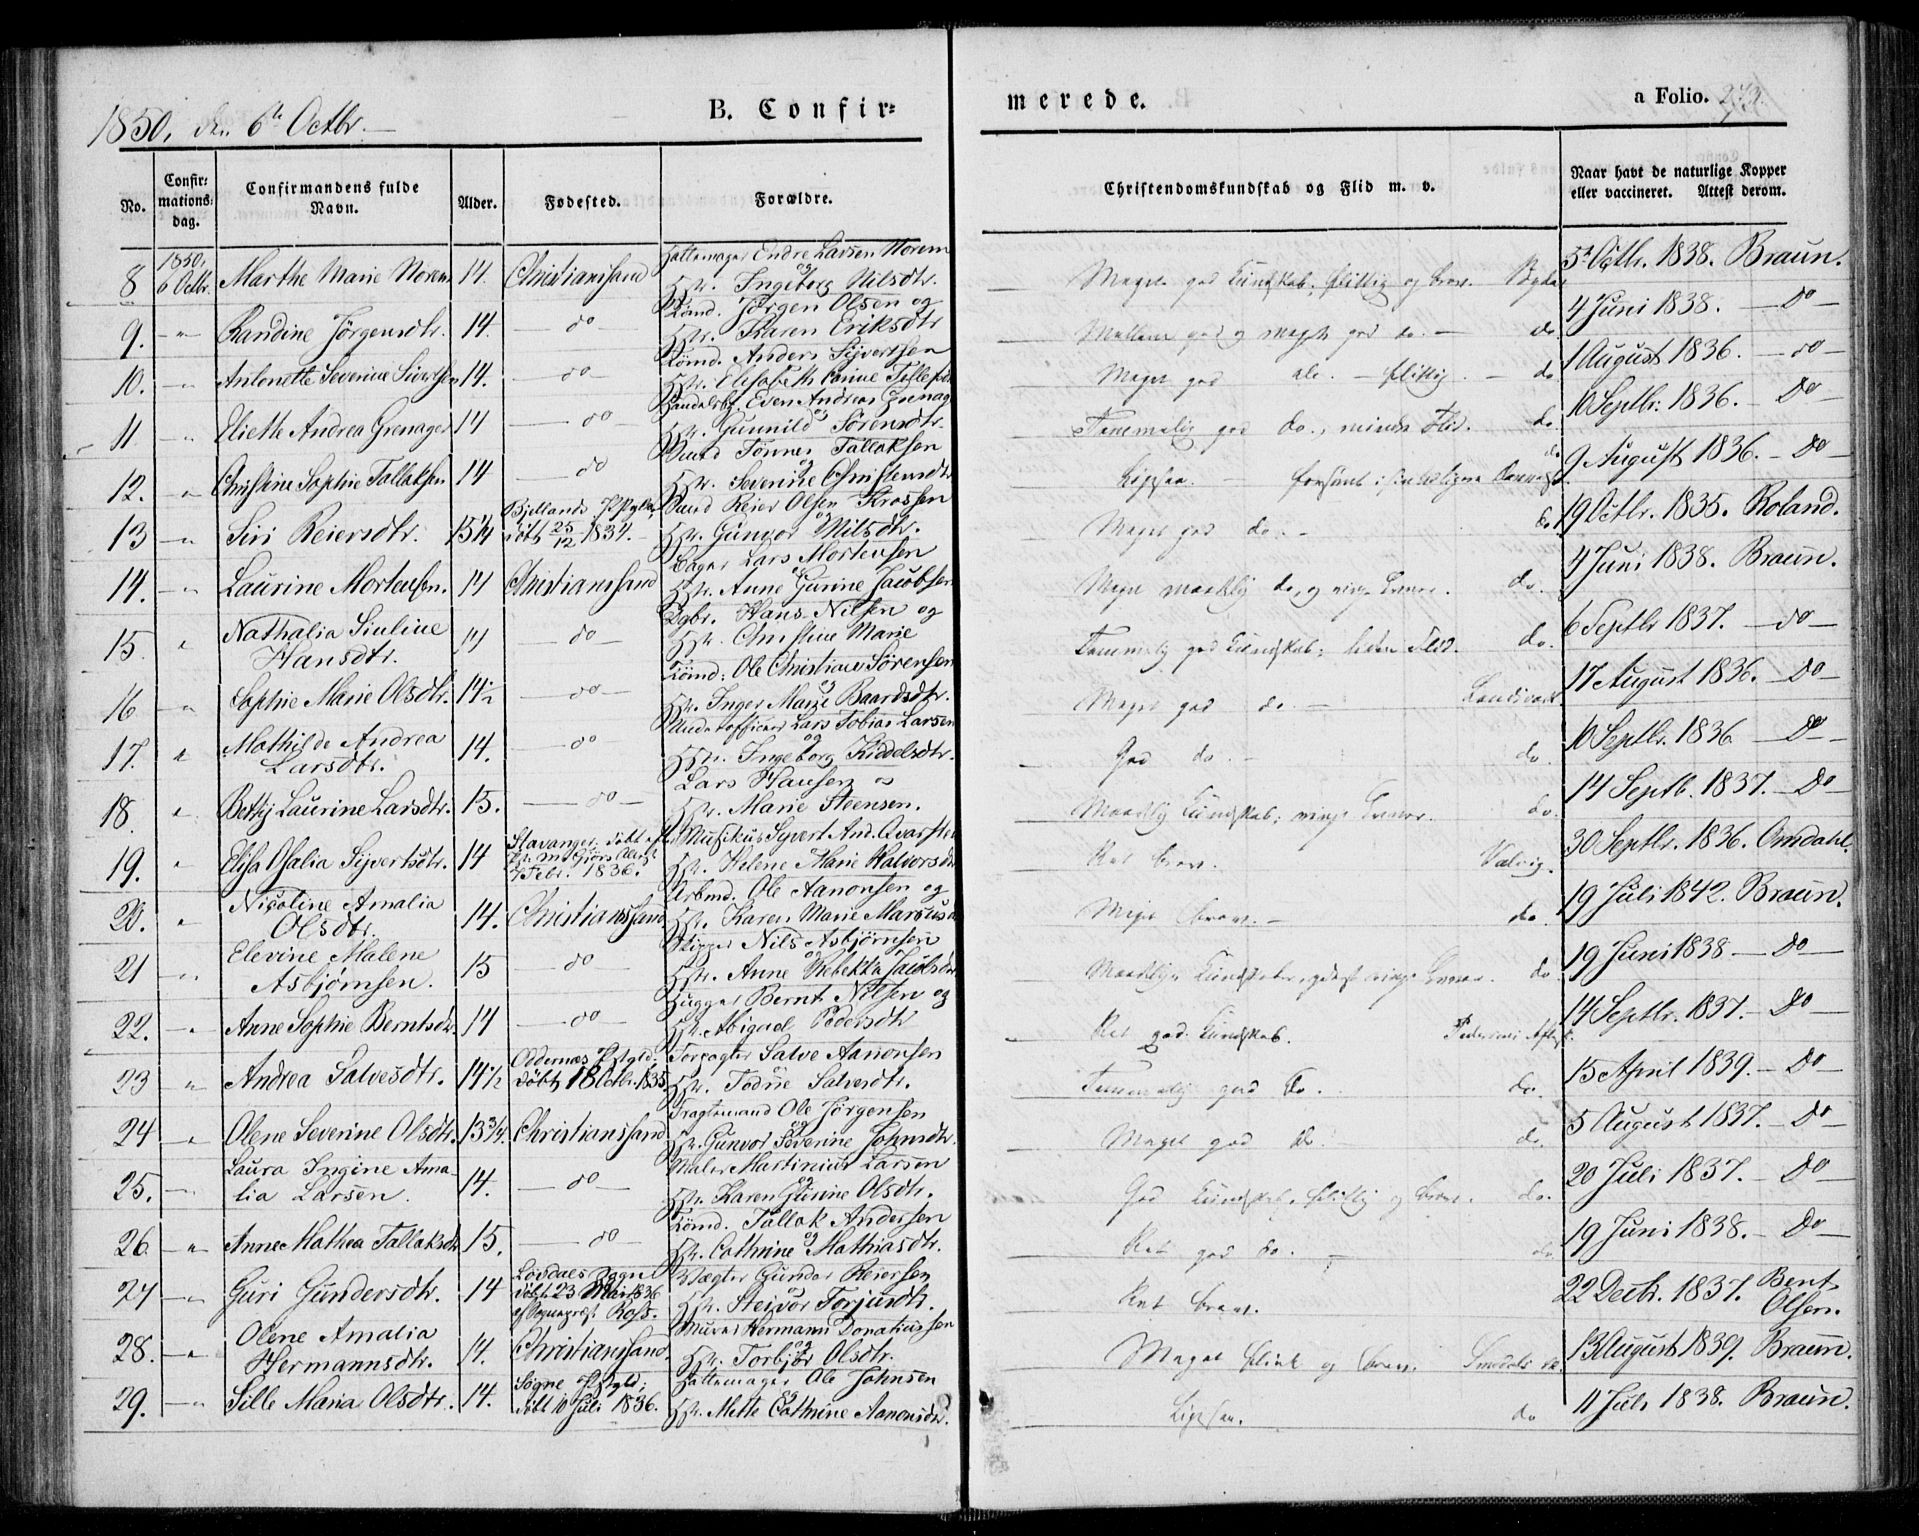 1850, den 6te Octbr.
B. Confir=
merede.
a Folio. 273.
No.
Confir=
mations=
dag.
Confirmandens fulde
Navn.
Alder.
Fødested.
Forældre.
Christendomskundskab og Flid m. v.
Naar havt de naturlige Kopper
eller vaccineret. Attest derom.
1850. Hattemager Endre Larsen Norem
8 6 Octbr. Marthe Marie Norem 14. Christianssand og Hstr. Ingeborg Nilsdtr. Meget god Kundskab, flittig og brav. 5t Octbr. 1838. Braun.
Kömd. Jörgen Olsen og
9. " Randine Jörgensdtr. 14. do Hstr. Karen Eriksdtr do. do. 4 Juni 1838. Do
Kömd. Anders Sijvertsen
10. " Antonette Severine Sivertsen 14. do Hstr. Elisabeth Meget god do. flittig. do 1 August 1836. do
Even Andreas
11 " Eliette Andrea Grenager 14 do og Hstr. Gunnild Sörensdtr. Temmelig god do., mindre Flid. do. 10 Septbr. 1836. Do
Tönnes Tallaksen
12. " Christine Sophie Tallaksen 14 do og Hstr. Severine Christensdtr Ligesaa do 9 August 1836. Do
Bjellands Reier Olsen Krossen
13 " Siri Reiersdtr. 15 1/4 döbt 25/12 1834. og Hstr. Gunvor Nilsdtr. Meget god do. do. 19 Octbr. 1835. Roland.
Bager Lars Mortensen
14. " Laurine Mortensen. 14 Christianssand og Hstr. Anne Gurine Jacobsen Meget maadelig do. do. 4 Juni 1838. Braun.
Nathalia Hans Nilsen og
15 " Hansdtr. 14 do Hstr. Christine Marie Temmelig god Kundskab; liden Flid. do. 6 Septbr 1837. do
Kömd: Ole Christian Sörensen
16 " Sophie Marie Olsdtr. 14 1/2 do og Hstr. Inger Marie Baardsdtr. Meget god do. 17 August 1836. Do
Mathilde Andrea Underofficeer Lars Tobias Larsen
17. " Larsdtr. 14. do og Hstr. Ingeborg Kiddelsdtr. God do. do. 10 Septbr. 1836 Do
Lars Hansen og
18. " Betthj Laurine Larsdtr. 15. do Hstr. Marie Steensen. Maadelig Kundskab; ringe Evner. do. 14 Septb. 1837. Do
Stavanger; döbt af Musikus Syvert And.
19. " Elisa Sijvertsdtr. 14 7 Febr. 1836. Hstr. Helene Marie Halvorsdtr Ret brav. Valvig. 30 Septbr. 1836. Omdahl.
Nicoline Amalia Arbmd. Ole Aanonsen og
20. " Olsdtr. 14. Christianssand Hstr. Karen Marie Meget brav. do. 19 Juli 1842. Braun.
Elevine Malene Skipper Nils Asbjörnsen
21 " Asbjörnsen. 15 do og Hstr. Anne Rebekka Jacobsdtr do 19 Juni 1838 Do
Bernt Nilsen og
22. " Anne Sophie Berntsdtr 14 do Hstr. Abigael Pedersdtr Ret god Kundskab. 14 Septbr. 1837. Do
Oddernæs Pstgld: Salve Aanonsen
23 " Andrea Salvesdtr. 14 1/2 döbt 18 Octbr. 1835 og Hstr. Salvesdtr. Temmelig god do. do. 15 April 1839. Do
Fragtemand Ole Jörgensen
24 " Olene Severine Olsdtr. 13 3/4. Christianssand og Hstr. Gunvor Severine Johnsdtr. Meget god do. do. 5 August 1837. Do
Laura Ingine Ama- Maler Martinius Larsen
25. " lia Larsen. 14. do og Hstr. Karen Gurine Olsdtr. God Kundskab, flittig og brav. do. 20 Juli 1837. Do
Kömd. Tallak Andersen
26 " Anne Mathea Tallaksdtr 15. do og Hstr. Cathrine Mathiasdtr. Ret god do. do. 19 Juni 1838. Do
Sogn Vægter Gunder Reiersen
27 " Guri Gundersdtr. 14 döbt 23 Mai 1836 af Sognepræst Ross. og Hstr. Steivor Torjusdtr. Ret brav. 22 Decbr. 1837. Bent Olsen.
Olene Amalia Murer Hermann Donatiussen
28. " Hermannsdtr. 14. Christianssand. og Hstr. Torbjör Olsdtr. Meget flink og brav. 13 August 1839. Braun.
Søgne Pstgld; Hattemager Ole Johnsen
29. " Sille Maria Olsdtr. 14. döbt 10 Juli 1836. og Hstr. Mette Cathrine Aanonsdtr. Ligesaa. do 11 Juli 1838. Braun.